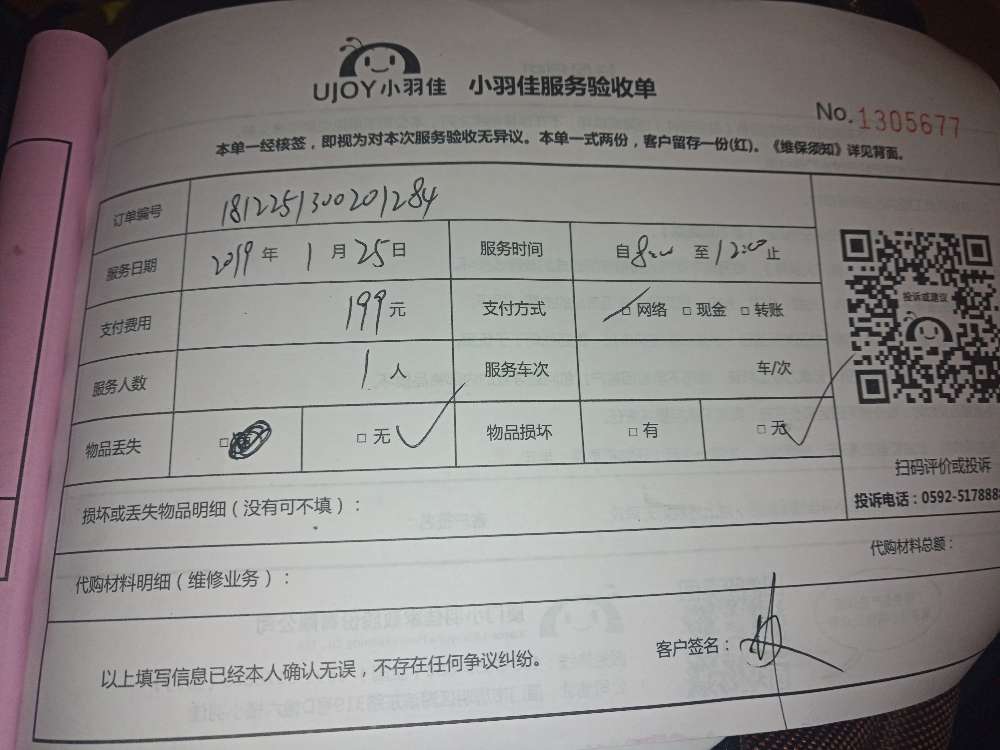 UJOY小羽佳 小羽佳服务验收单
No.1305677
本单一经核签，即视为对本次服务验收无异议。本单一式两份，客户留存一份(红)。《维保须知》详见背面。
订单编号 1812251300201284
服务日期 2019年 1月25日 服务时间 自8:00至12:00止
支付费用 199元 支付方式 □网络 □现金 □转账
服务人数 1人 服务车次 车/次
物品丢失 □ □无 物品损坏 □有 □无
投诉或建议
扫码评价或投诉
投诉电话：0592-517888
损坏或丢失物品明细（没有可不填）：
代购材料明细（维修业务）： 代购材料总额：
以上填写信息已经本人确认无误，不存在任何争议纠纷。 客户签名：